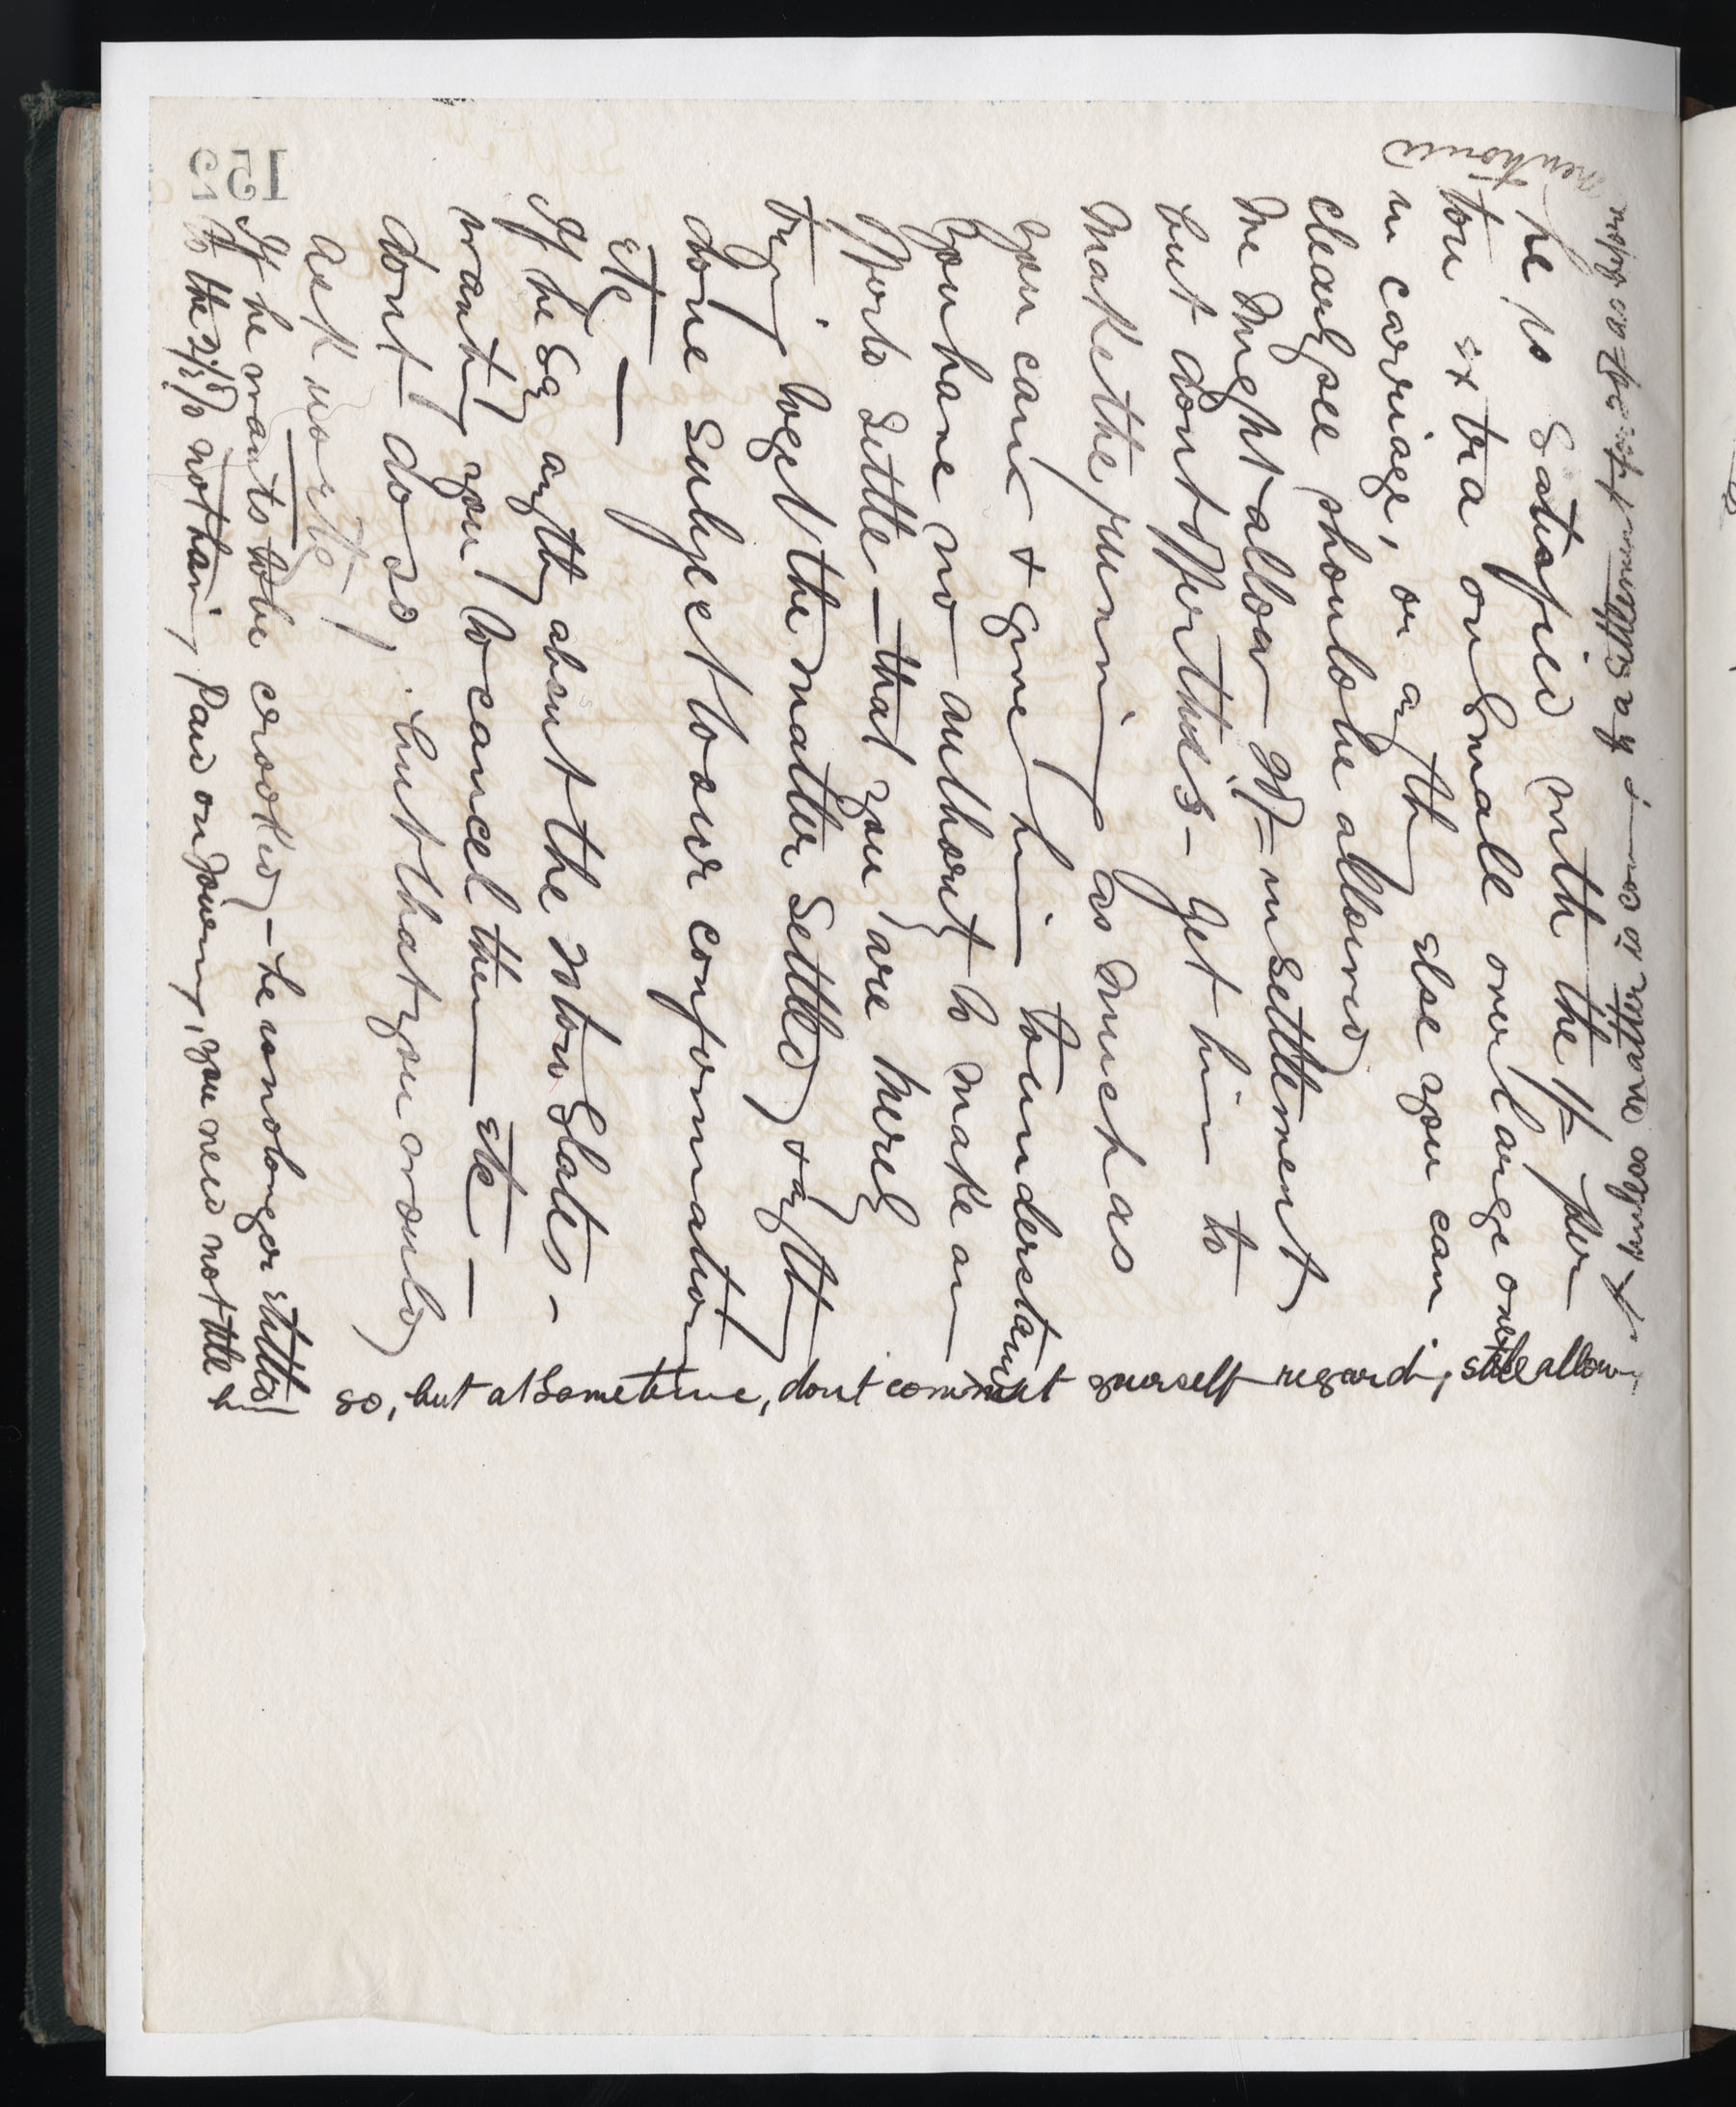 he is satisfied with the 1⁰⁰ per
ton extra on small over large ones
in carriage, or anyth else you can
clearly see should be allowed
We might allow in settlement
but dont offer this - get him to
make the running as much as
you can & give him to understand
you have no authority to make an
offer to settle — that you are merely
trying to get the matter settled & anyth
done subject to our confirmation
etc —
If he say anyth about the Ntown Slates -
wanting you to cancel them etc —
dont do so, but that you would
ask write
If he wants to be crooked - he is no longer entitled
to the 2½% not having paid on going, you need not tell him
so, but at sametime, dont commit yourself regarding still allow
mentioned
152